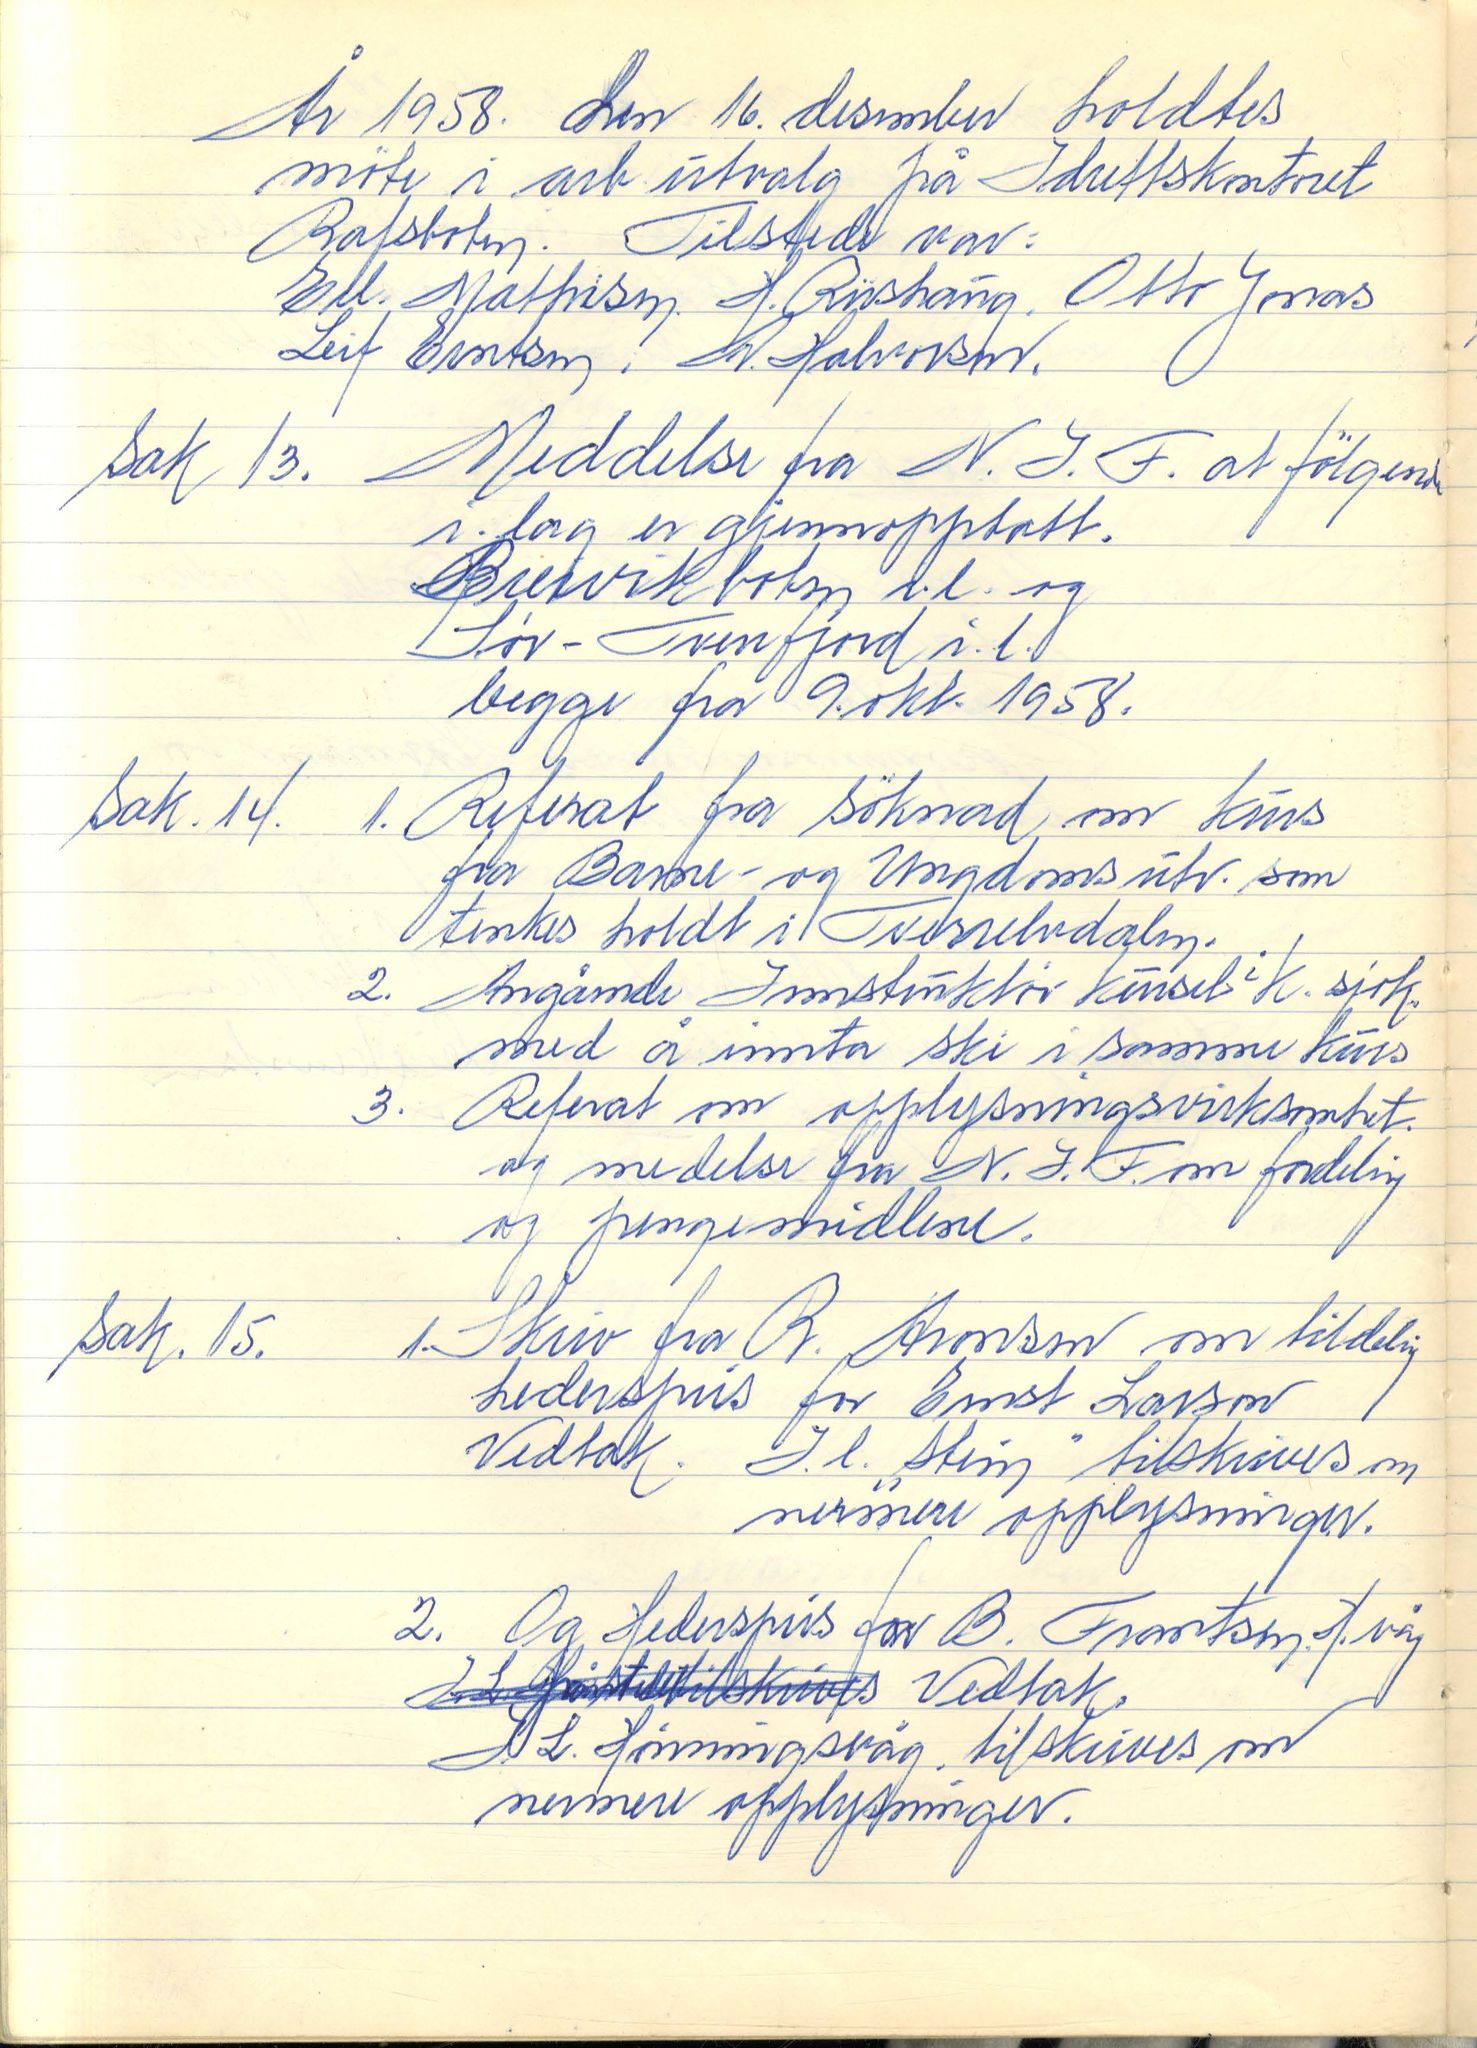 År 1958. Den 16. desember holdtes
møte i arb utvalg på Idrettskontoret
Rafsbotn. Tilstede var:
Ell. Mathisen, H. Riishaug, Otto Jonas
Leif Erntsen, N. Halvorsen.
Sak 13. Meddelse fra N. I. F. at følgende
i. lag er gjennopptatt.
Breivikbotn i.l. og
Sør-Tverrfjord i. l.
begge fra 9. okt. 1958.
Sak. 14. 1. Referat fra söknad om kurs
fra Barne- og Ungdomsutv. som
tenkes holdt i Tverrelvdalen.
2. Angående Innstruktør kurset i K. sjok.
med å innta ski i samme kurs
3. Referat om opplysningsvirksomhet.
og medelse fra N. I. F. om fordeling
og pengemidlene.
Sak. 15. 1. Skriv fra R. Aronsen om tildeling
hederspris for Ernst Larsen
Vedtak. I. l. „Stein" tilskrives om
nermere opplysninger.
2. Og Hederspris for B. Frantsen, H. våg
Vedtak.
I L. Honningsvåg. tilskrives om
nermere opplysninger.